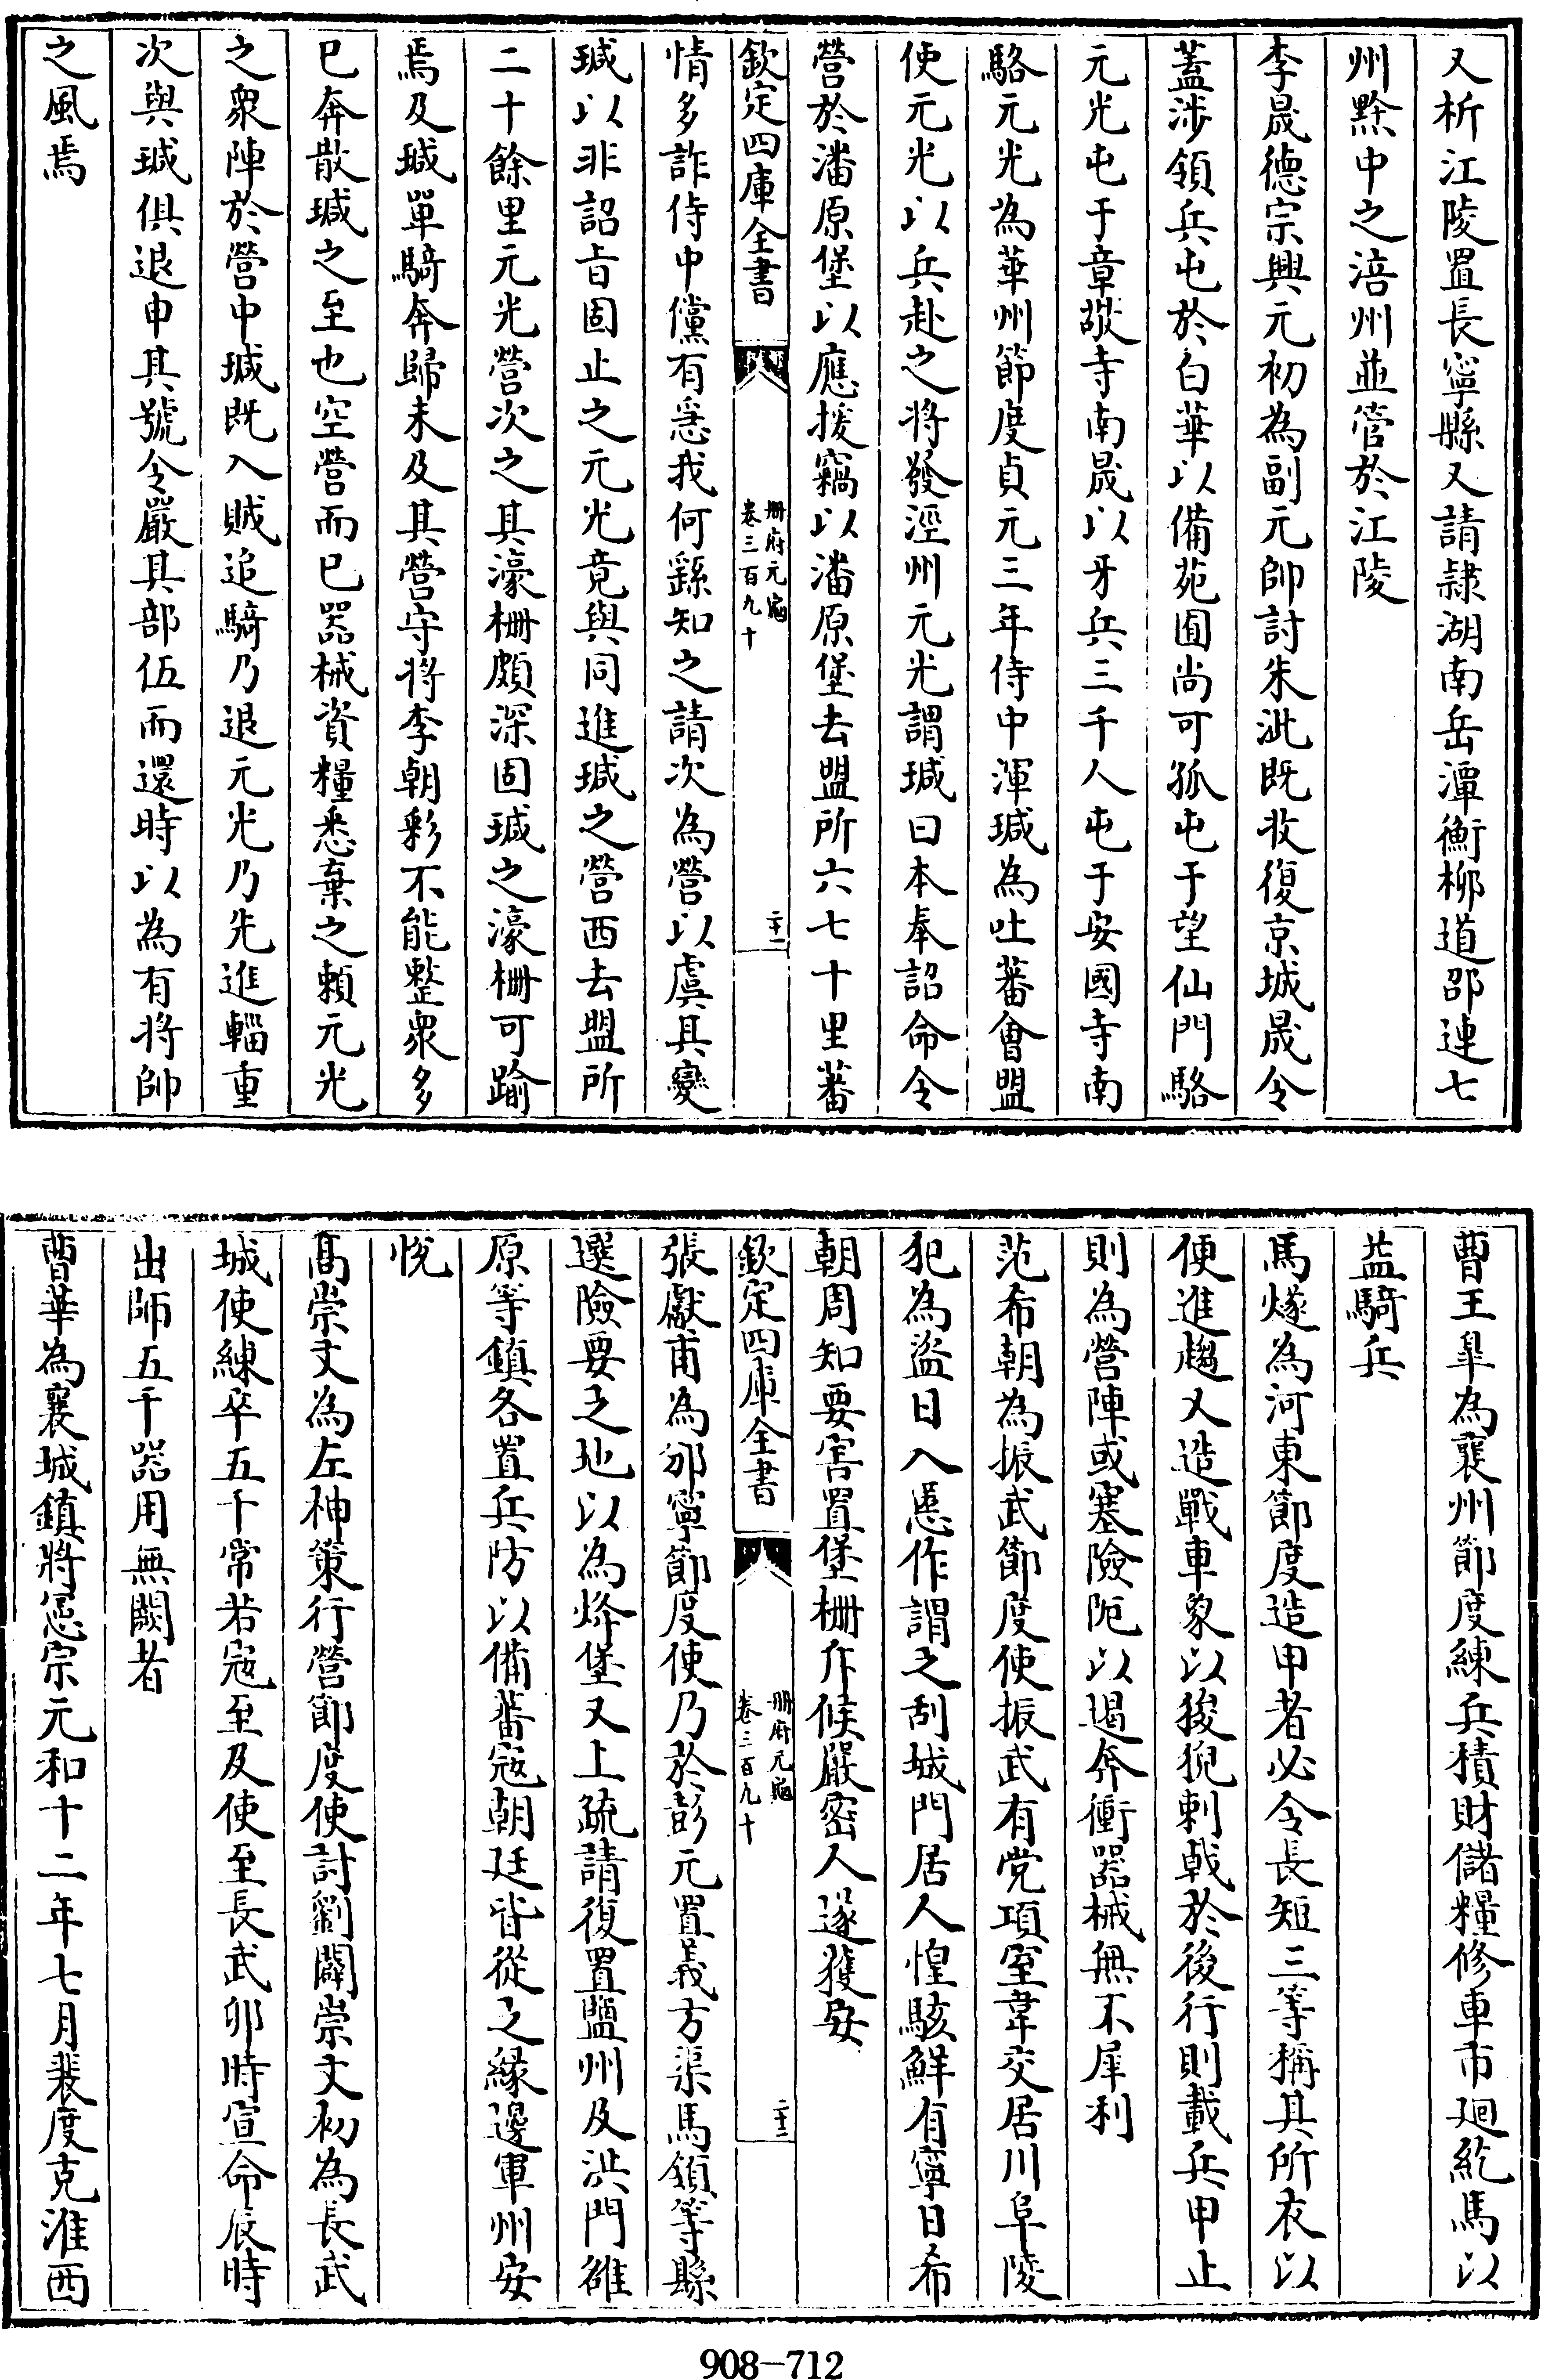 又析江陵置長寧縣又請隷湖南岳潭衡柳道邵連七
州黔中之涪州並管於江陵
李晟德宗興元初為副元帥討朱泚既收復京城晟令
蓋涉領兵屯於白華以備苑囿尚可孤屯于望仙門駱
元光屯于章敬寺南晟以牙兵三千人屯于安國寺南
駱元光為華州節度貞元三年侍中渾瑊為吐蕃會盟
使元光以兵赴之將發涇州元光謂瑊曰本奉詔命令
營於潘原堡以應援竊以潘原堡去盟所六七十里蕃
欽定四庫全書
册府元龜
卷三百九十
二十一
情多詐侍中儻有急我何繇知之請次為營以虞其變
瑊以非詔旨固止之元光竟與同進瑊之營西去盟所
二十餘里元光營次之其濠柵頗深固瑊之濠柵可踰
焉及瑊單騎奔歸未及其營守將李朝彩不能整衆多
已奔散瑊之至也空營而已器械資糧悉棄之頼元光
之衆陣於營中瑊既入賊追騎乃退元光乃先進輜重
次與瑊俱退申其號令嚴其部伍而還時以為有將帥
之風焉
曹王臯為襄州節度練兵積財儲糧修車市廻紇馬以
益騎兵
馬燧為河東節度造甲者必令長短三等稱其所衣以
便進趨又造戰車象以狻猊刺戟於後行則載兵甲止
則為營陣或塞險阨以遏奔衝器械無不犀利
范希朝為振武節度使振武有党項室韋交居川阜陵
犯為盜日入慝作謂之刮城門居人惶駭鮮有寧日希
朝周知要害置堡柵斥候嚴密人遂獲安
欽定四庫全書
册府元龜
卷三百九十
二十二
張獻甫為邠寧節度使乃於彭元置義方渠馬領等縣
選險要之地以為烽堡又上疏請復置鹽州及洪門雒
原等鎮各置兵防以備蕃寇朝廷皆從之緣邊軍州安
悅
髙崇文為左神策行營節度使討劉闢崇文初為長武
城使練卒五千常若寇至及使至長武卯時宣命辰時
出師五千器用無闕者
曹華為襄城鎮將憲宗元和十二年七月裴度克淮西
908-712